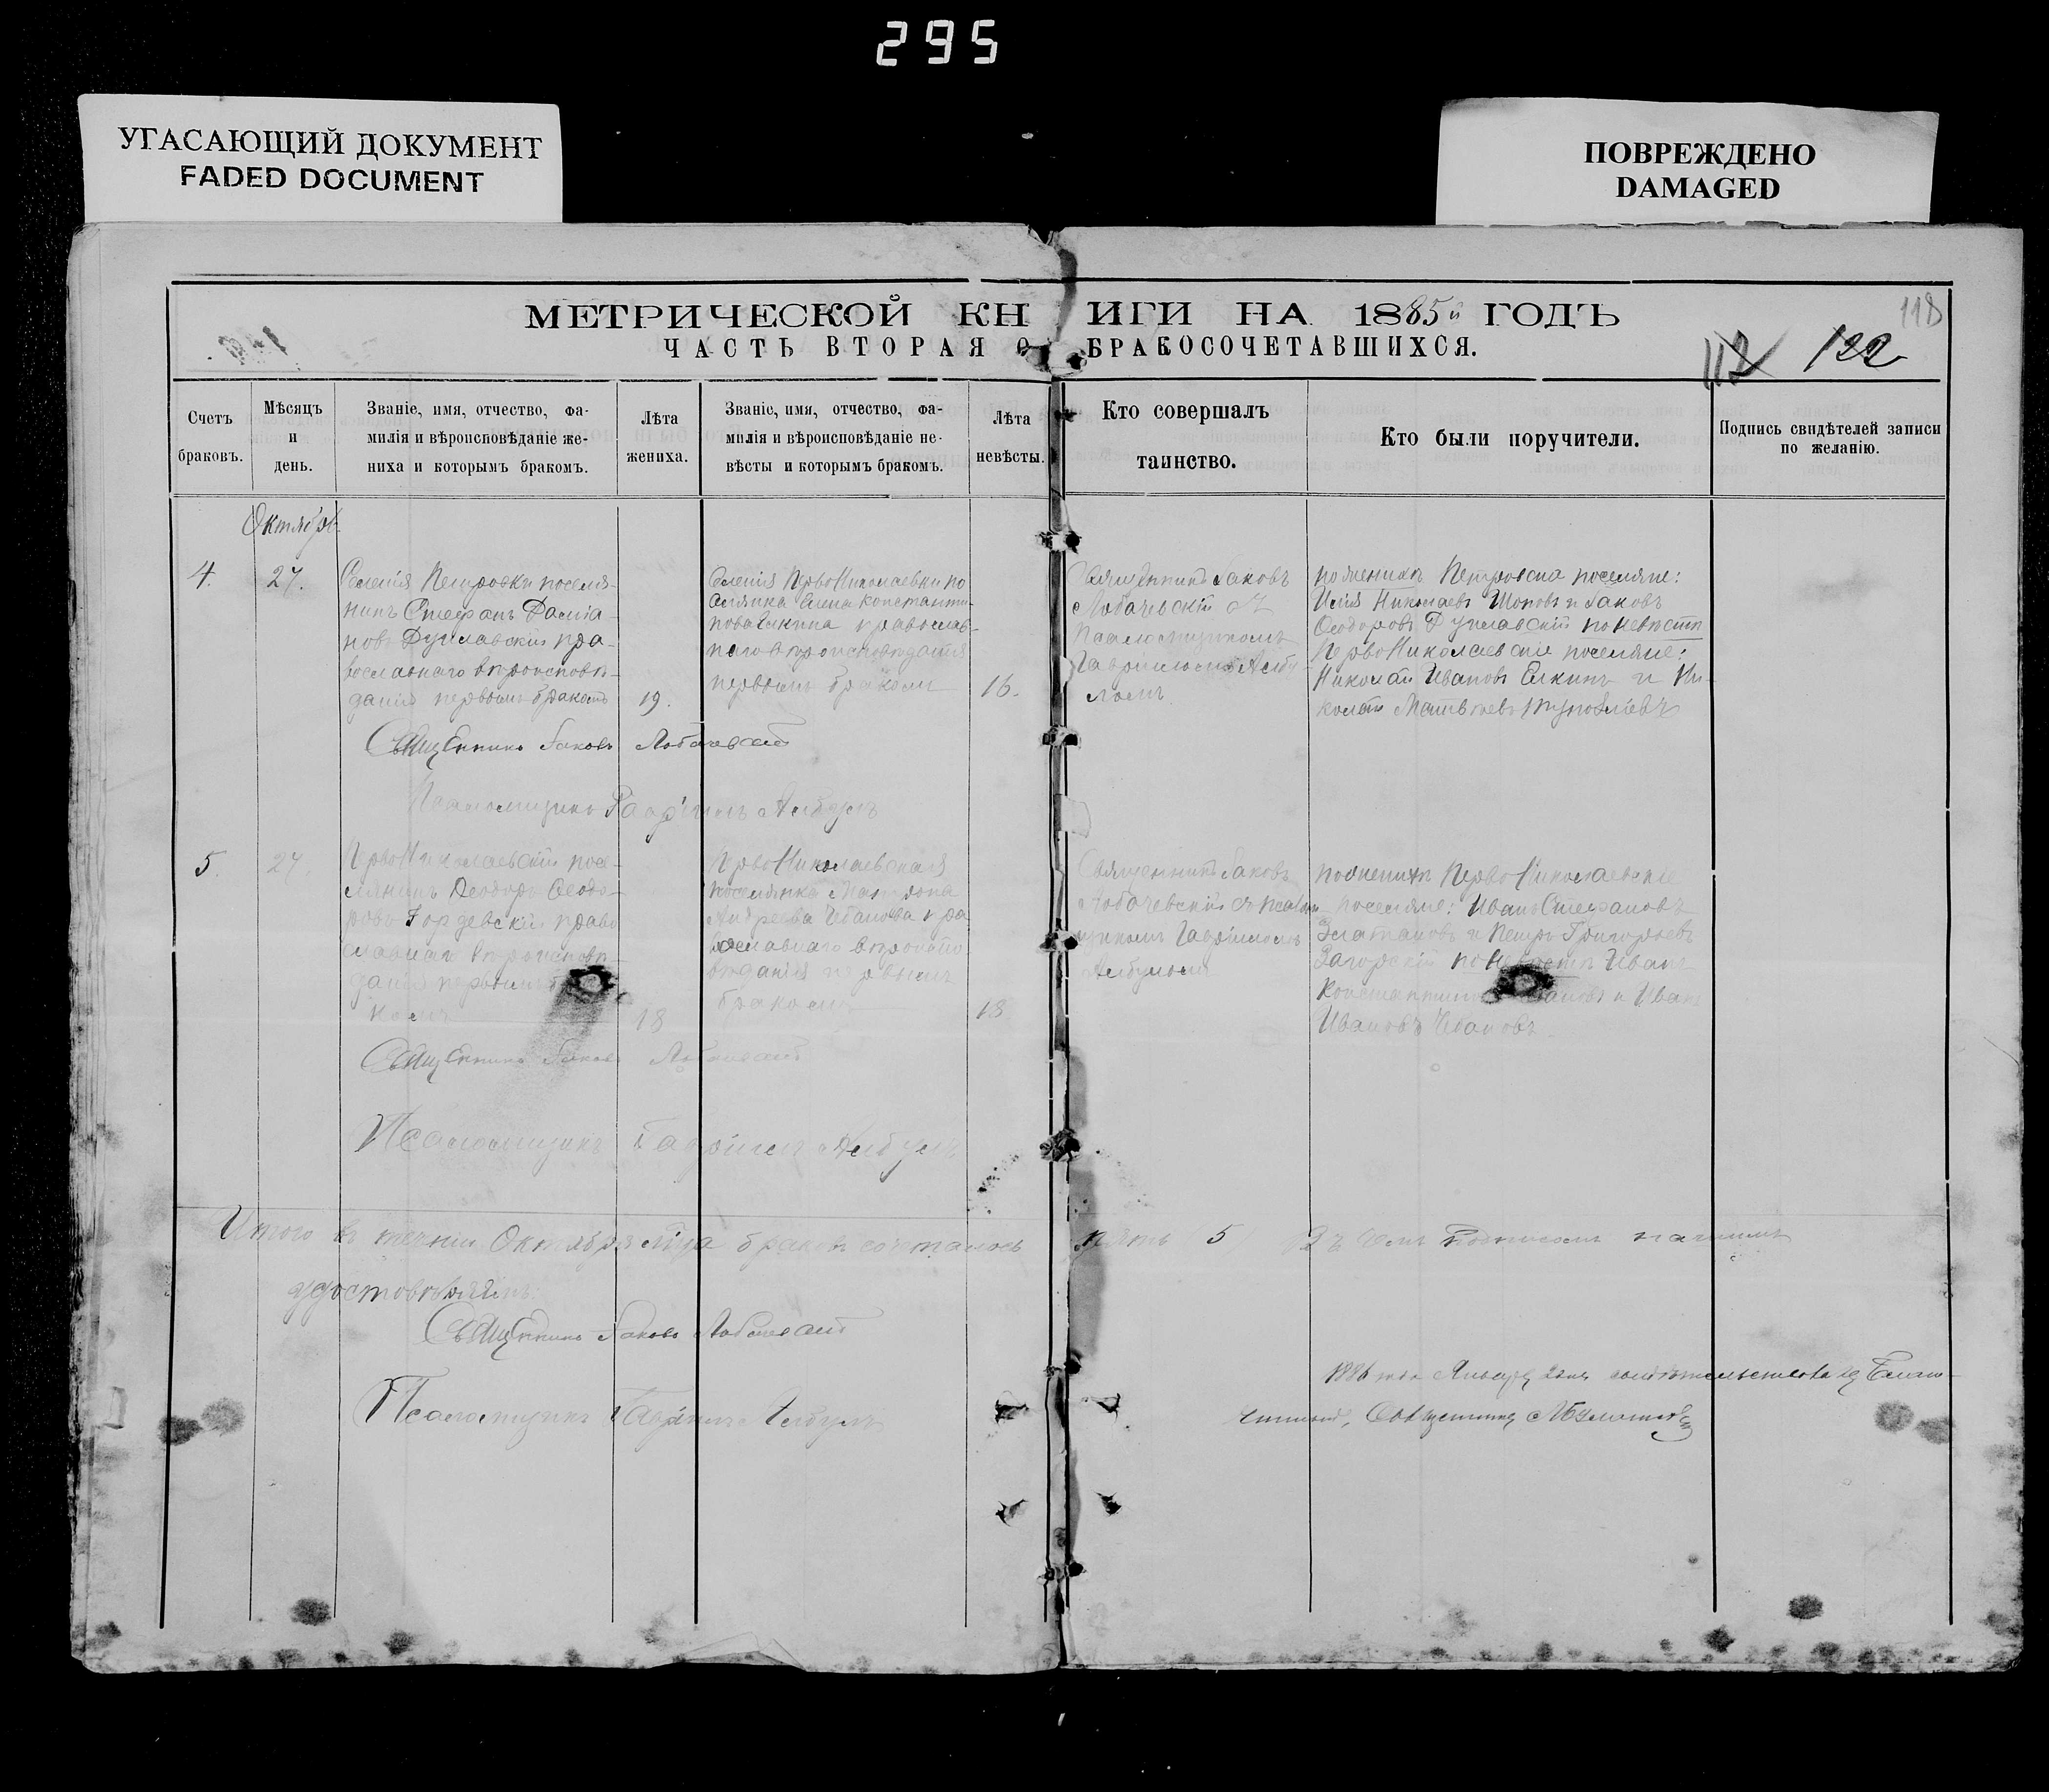 295
УГАСАЮЩИЙ ДОКУМЕНТ
FADED DOCUMENT
ПОВРЕЖДЕНО
DAMAGED
МЕТРИЧЕСКОЙ КНИГИ НА 1885й ГОДЪ
118
ЧАСТЬ ВТОРАЯ О БРАКОСОЧЕТАВШИХСЯ.
112 122
Счетъ
браковъ.
Мѣсяцъ
и
день.
Званіе, имя, отчество, фа-
милія и вѣроисповѣданіе же-
ниха и которымъ бракомъ.
Лѣта
жениха.
Званіе, имя, отчество, фа-
милія и вѣроисповѣданіе не-
вѣсты и которымъ бракомъ.
Лѣта
невѣсты.
Кто совершалъ
таинство.
Кто были поручители.
Подпись свидѣтелей записи
по желанію.
Октябрь
4.
27.
Селенія Петровки поселя-
нинъ Стефанъ Даміа-
новъ Дуплавскій пра-
вославнаго вѣроисповѣ-
данія первымъ бракомъ
19.
Селенія ПервоНиколаевки по
селянка Елена Константи-
нова Елкина православ-
наго вѣроисповѣданія
первымъ бракомъ
16.
Священникъ Іаковъ
Лобачевскій съ
Псаломщикомъ
Гавріиломъ Албу-
ломъ
по женихѣ Петровски поселяне:
Илія Николаевъ Шоповъ и Іаковъ
Ѳеодоровъ Дуплавскій по невѣстѣ
ПервоНиколаевскіе поселяне:
Николай Ивановъ Елкинъ и Ни-
колай Матвѣевъ
Священникъ Іаковъ Лобачевскій
Псаломщикъ Гавріилъ Албулъ
5.
27.
ПервоНиколаевскій посе-
лянинъ Ѳеодоръ Ѳеодо-
ровъ Гордевскій право
славнаго вѣроисповѣ-
данія первымъ бра
комъ
18
ПервоНиколаевская
поселянка Матрона
Андреева Чебанова пра
вославнаго вѣроиспо
вѣданія первымъ
бракомъ
18.
Священникъ Іаковъ
Лобачевскій съ псалом
щикомъ Гавріиломъ
Албуломъ
по женихѣ ПервоНиколаевскіе
поселяне: Иванъ Стефановъ
Златановъ и Петръ Григорьевъ
Загорскій по невѣстѣ Иванъ
Константиновъ Чебановъ и Иванъ
Ивановъ Чебановъ
Священникъ Іаковъ Лобачевскій
Псаломщикъ Гавріилъ Албулъ
Итого въ теченіи Октября мѣсяца браковъ сочеталось пять (5) Въ чемъ подписомъ нашимъ
удостовѣряемъ:
Священникъ Іаковъ Лобачевскій
Псаломщикъ Гавріилъ Албулъ
1886 года Января дня свидѣтельствовалъ Благо-
чинный, Священникъ